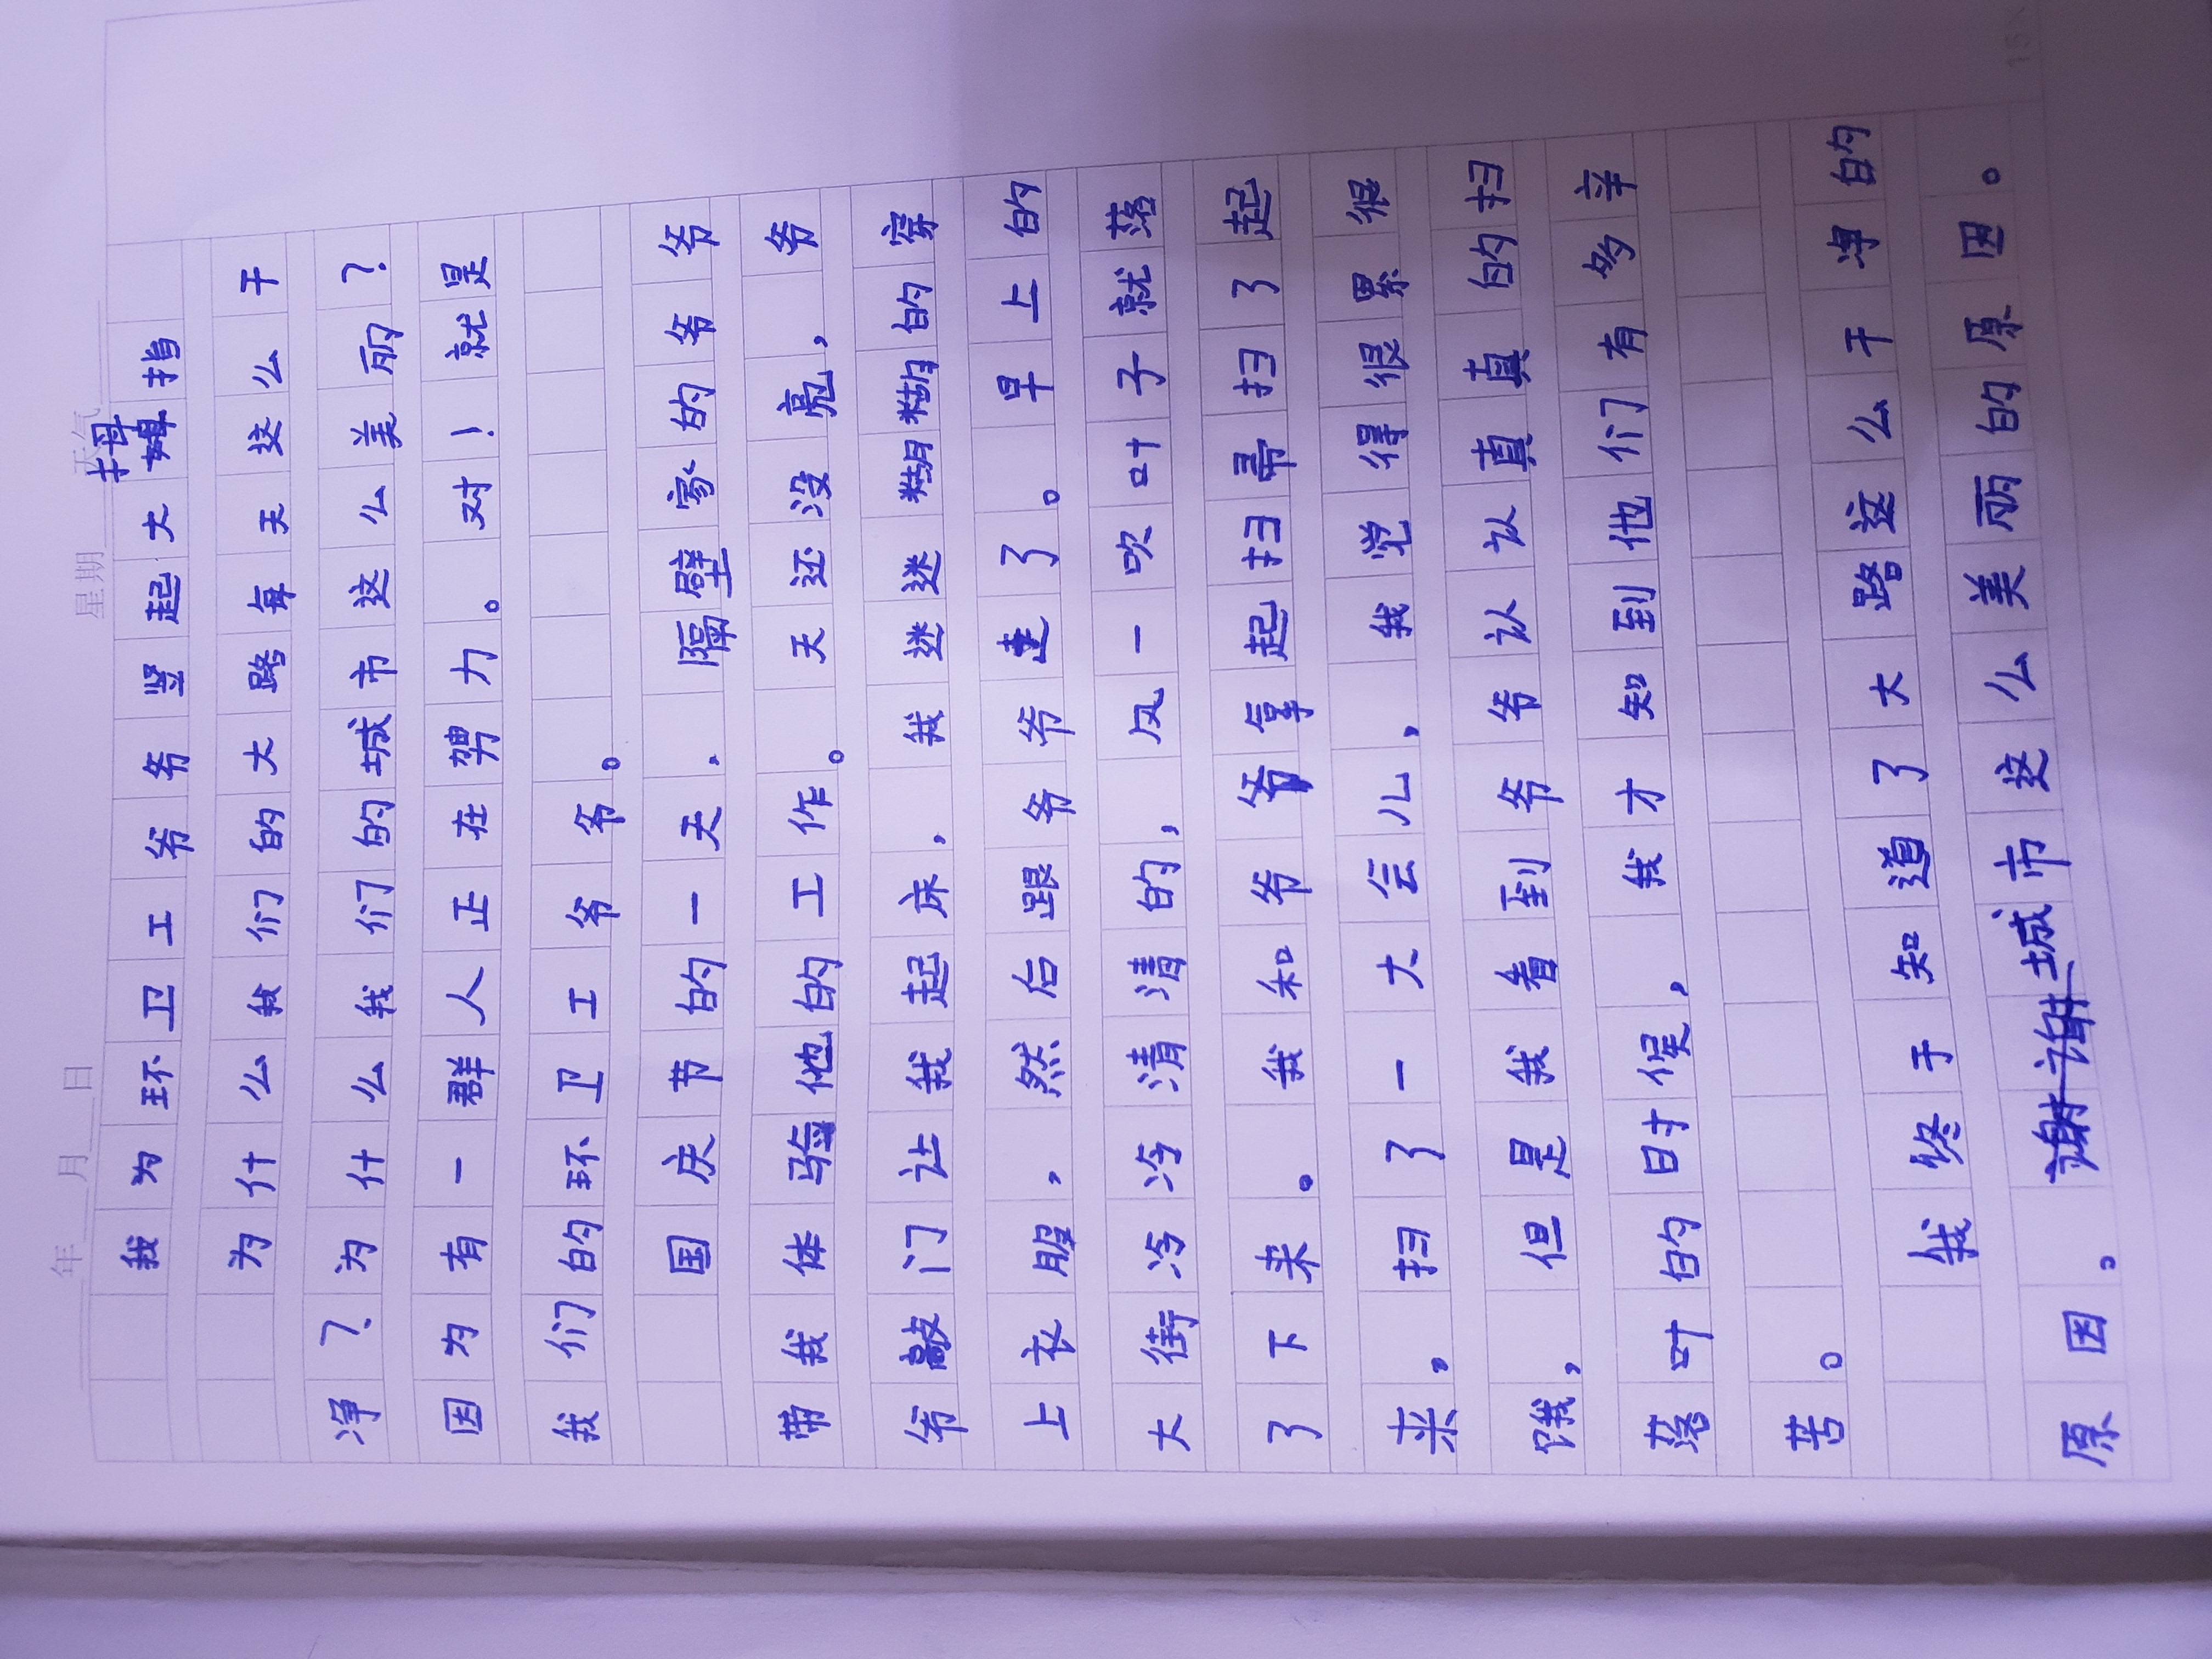 年 月 日 星期 天气
我为环卫工爷爷竖起大拇指
为什么我们的大路每天这么干
净?为什么我们的城市这么美丽?
因为有一群人正在努力。对!就是
我们的环卫工爷爷。
国庆节的一天,隔壁家的爷爷
带我体验他的工作。天还没亮,爷
爷敲门让我起床,我迷迷糊糊的穿
上衣服,然后跟爷爷走了。早上的
大街冷冷清清的,风一吹叶子就落
了下来。我和爷爷拿起扫帚扫了起
来,扫了一大会儿,我觉得很累很
饿,但是我看到爷爷认认真真的扫
落叶的时候,我才知到他们有多辛
苦。
我终于知道了大路这么干净的
原因。城市这么美丽的原因。